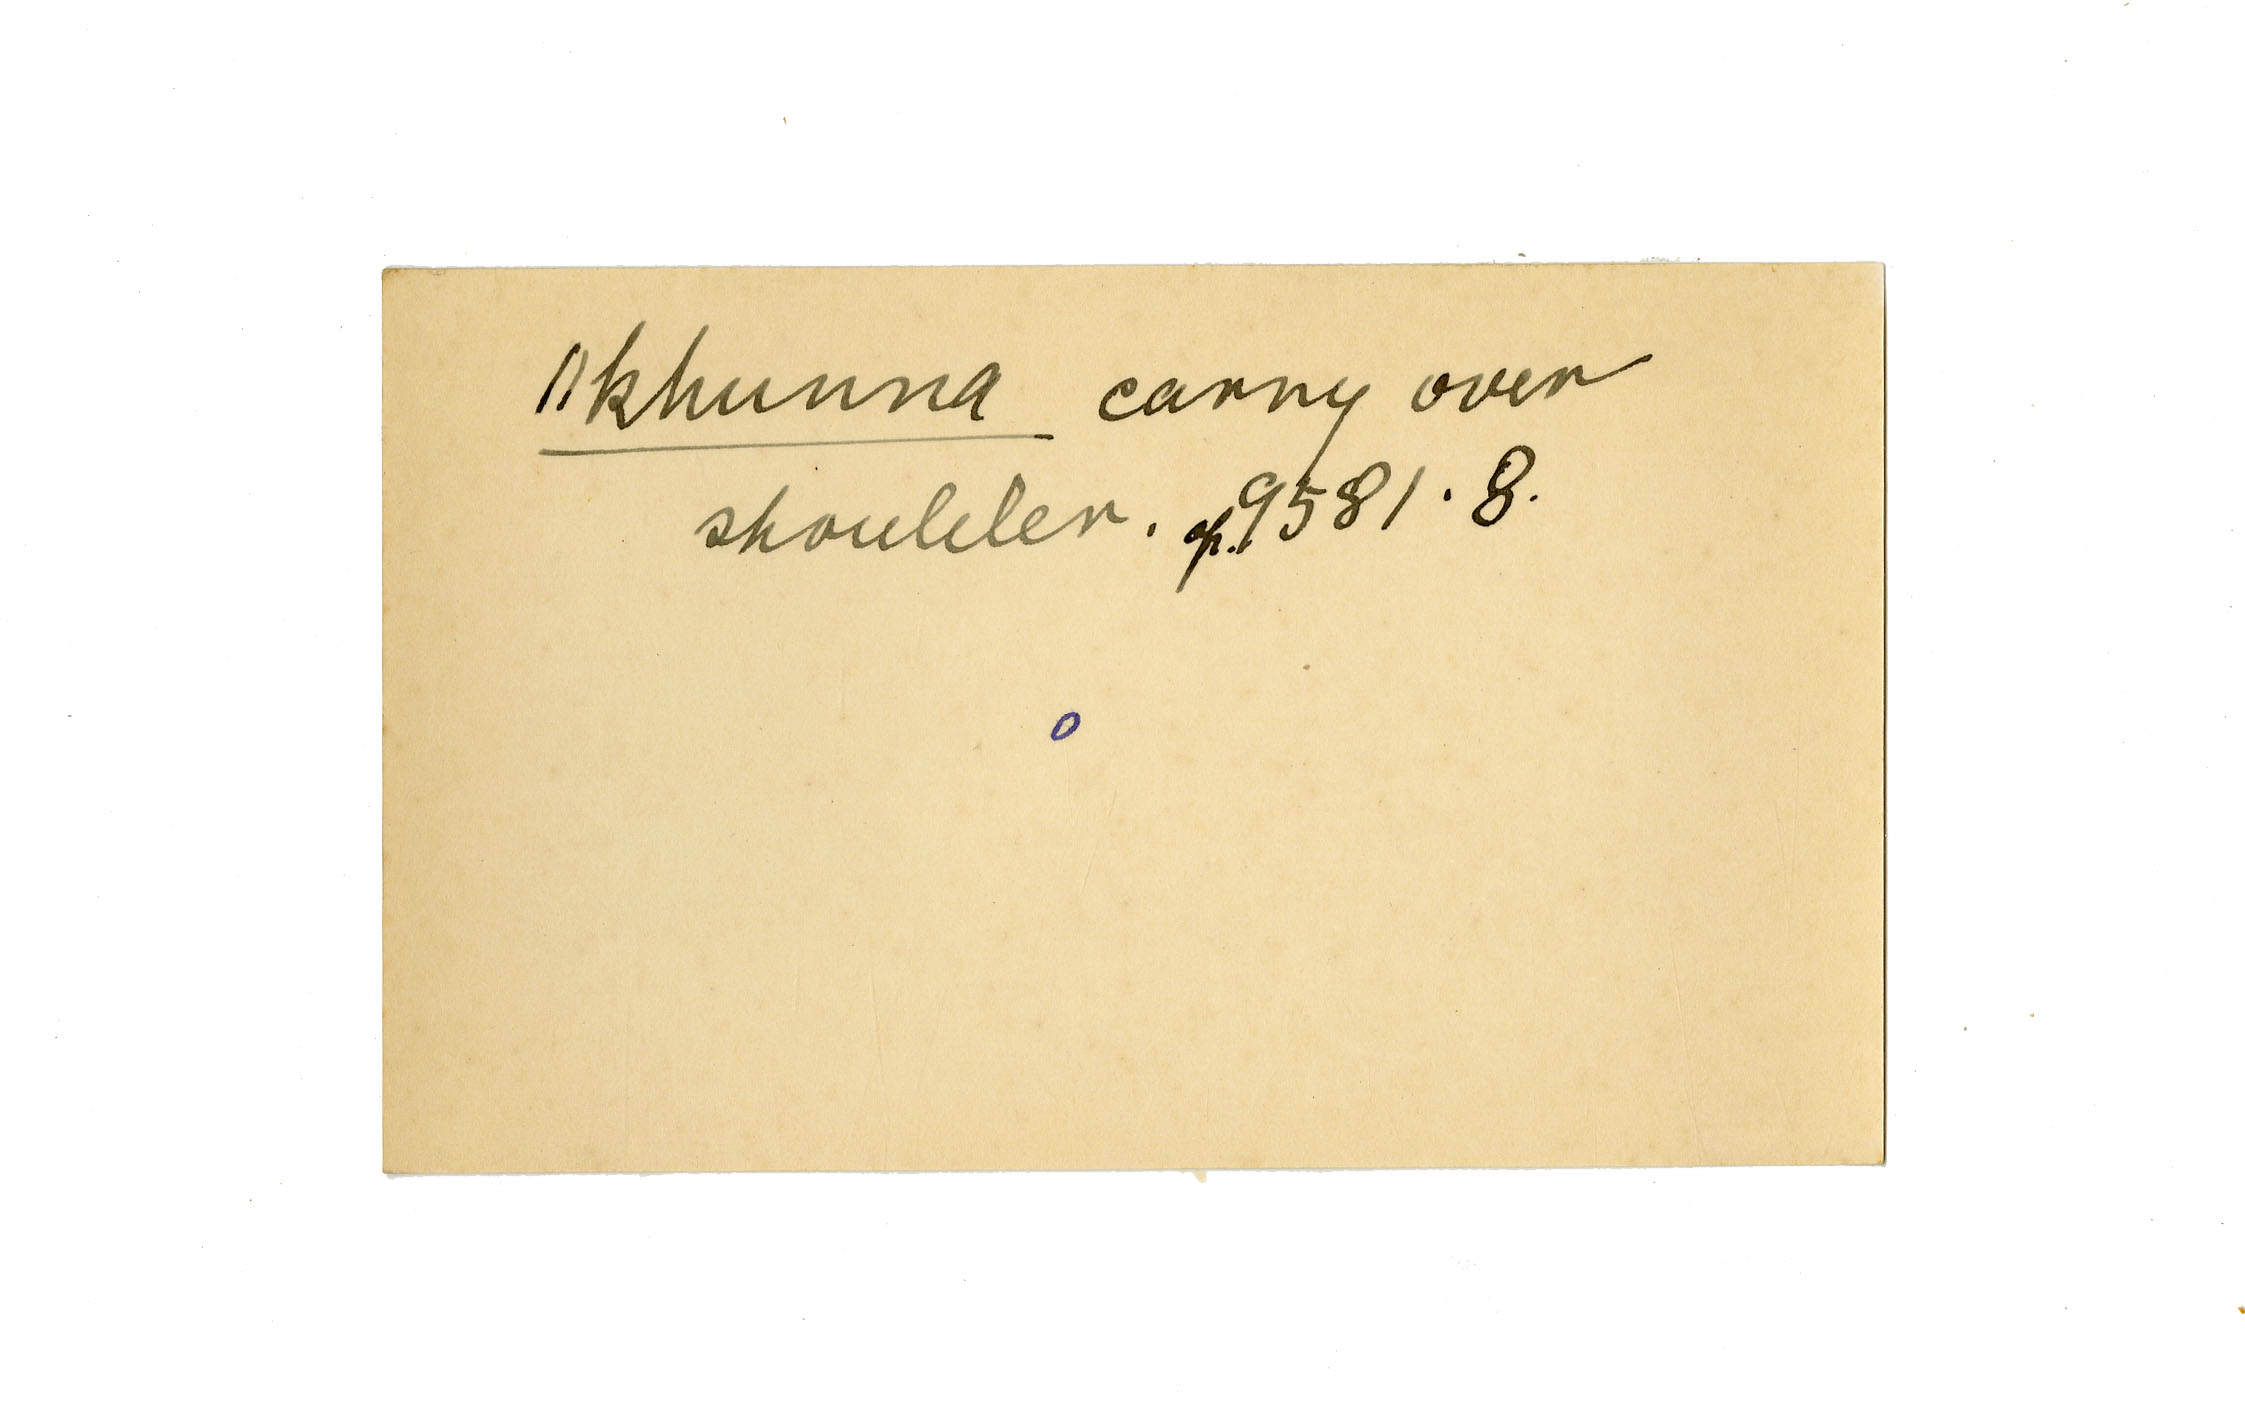 ǁkhunna carry over
shoulder. p. 9581. 8.
o